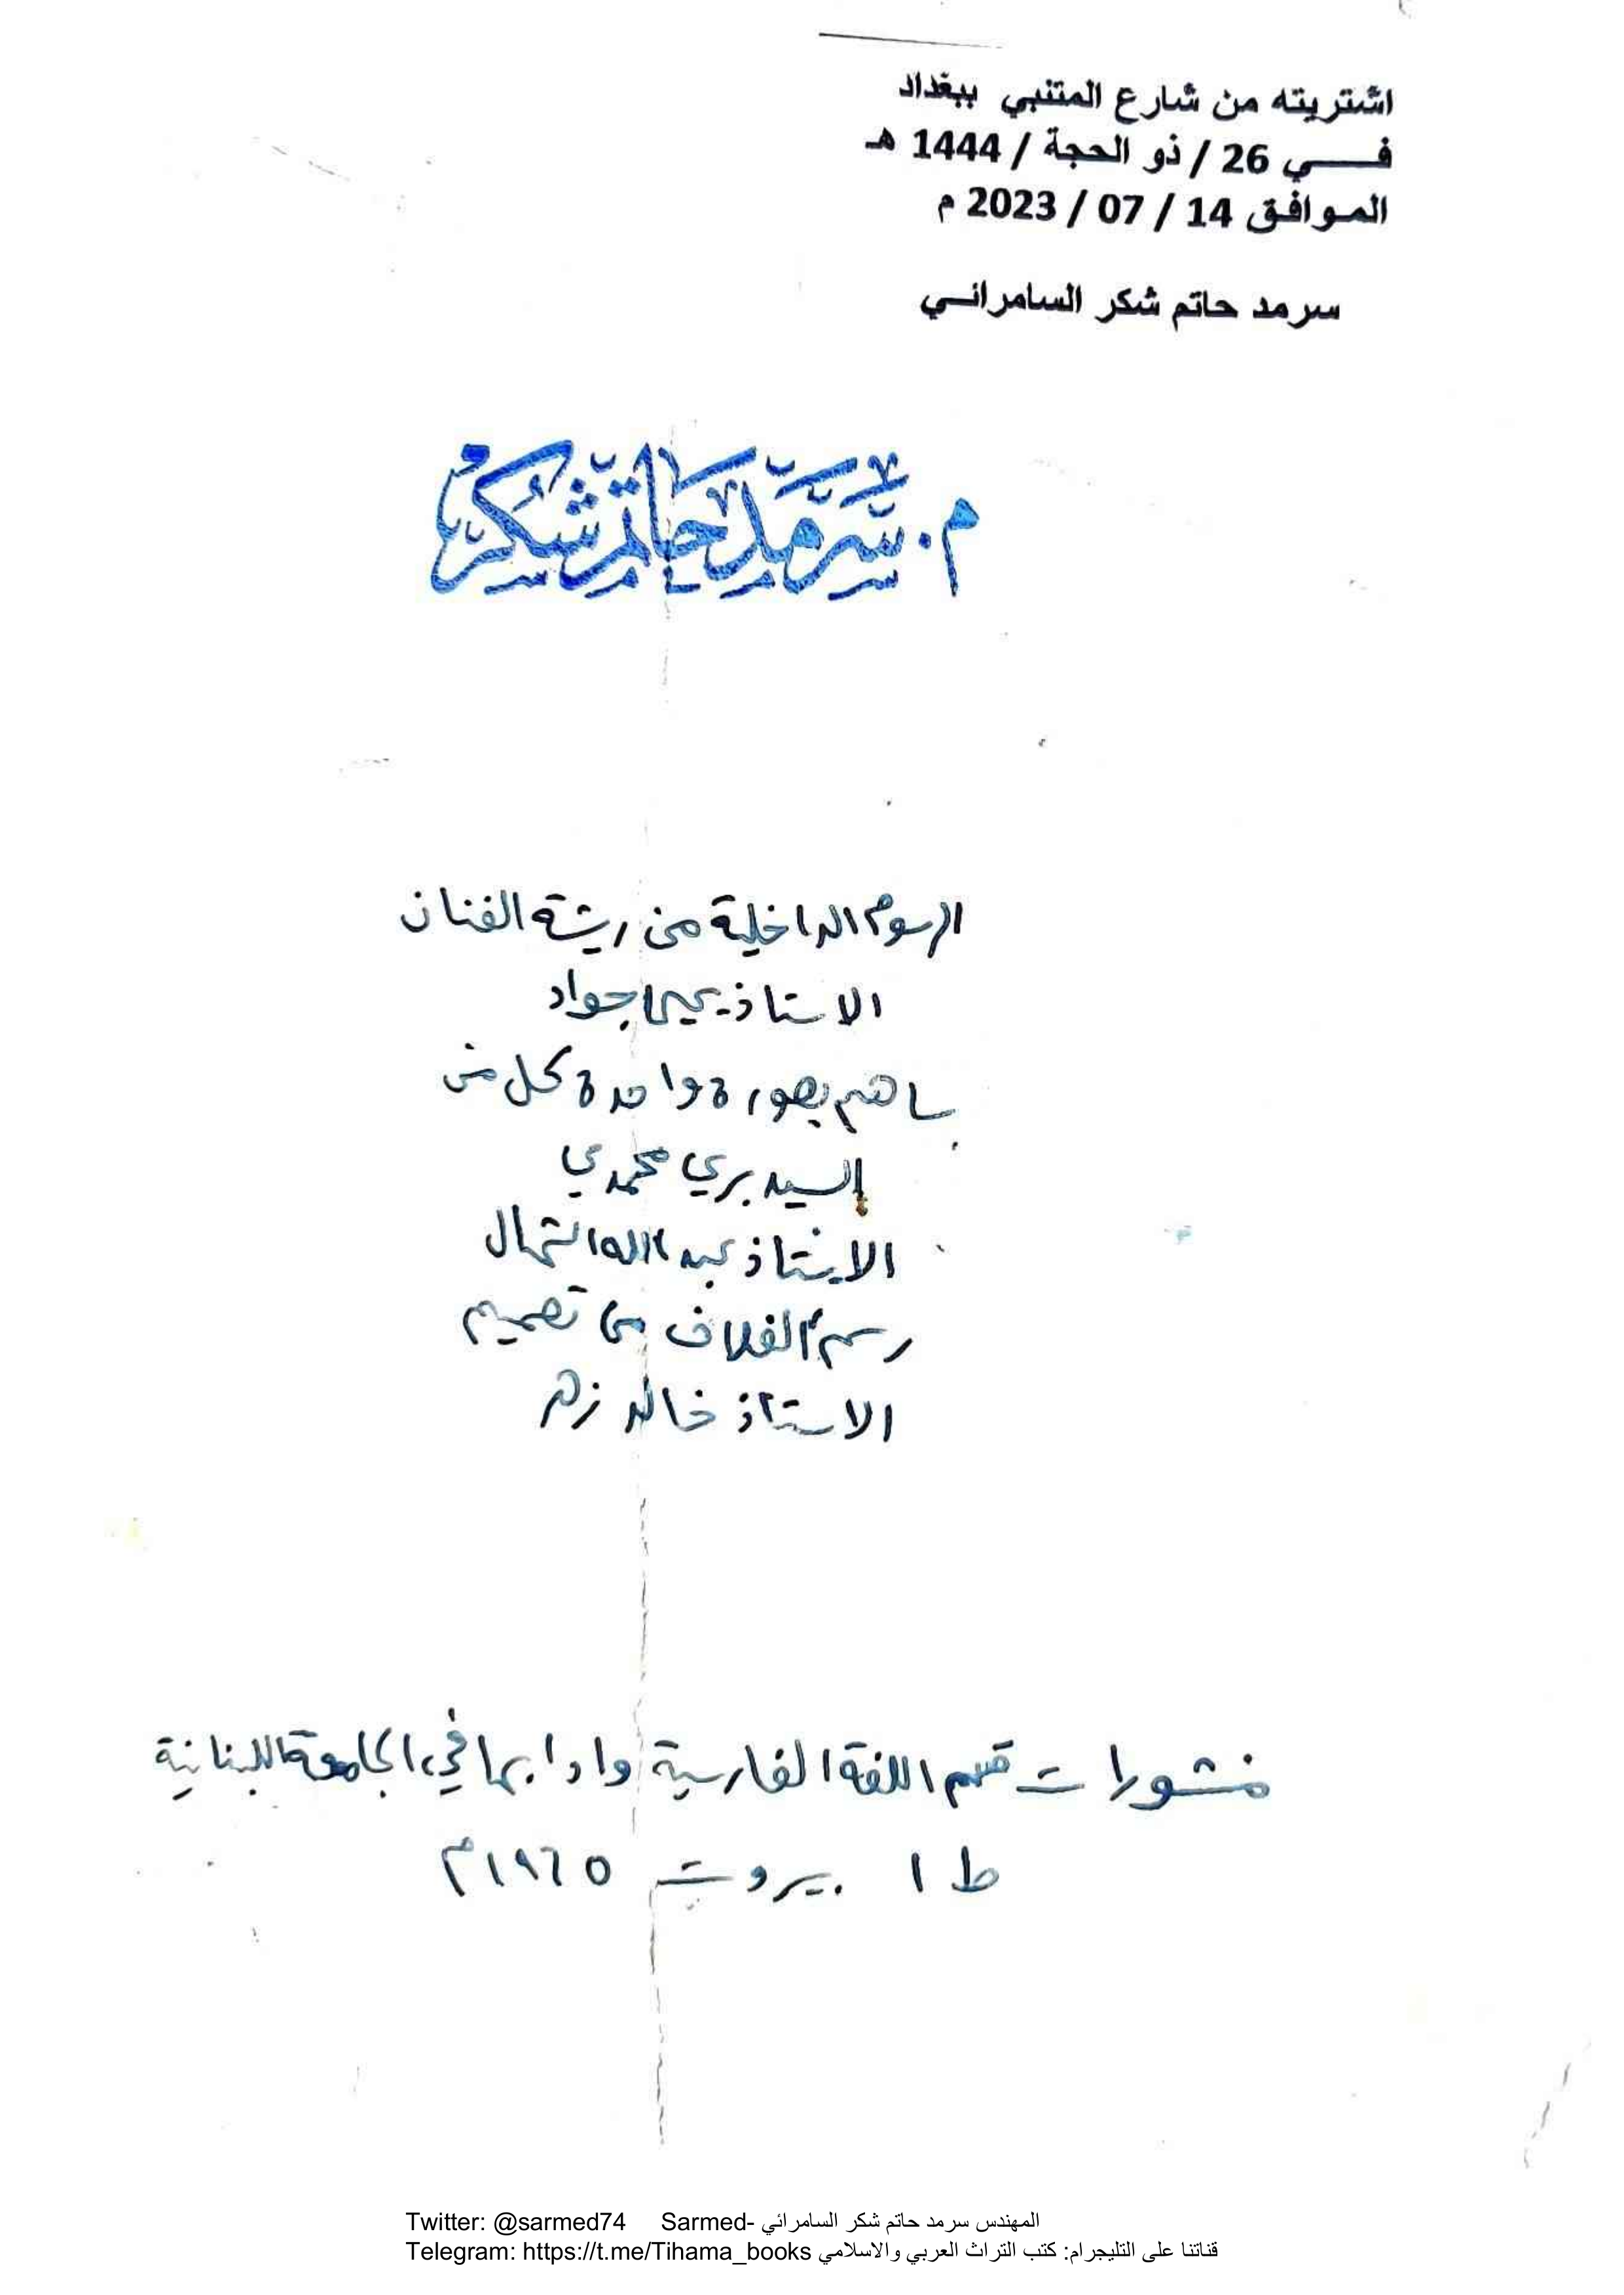 اشتريته من شارع المتنبي ببغداد
في 26 / ذو الحجة / 1444 هـ
الموافق 14 / 07 / 2023 م
سرمد حاتم شكر السامرائي
م. سرمد حاتم شكر
الرسوم الداخلية من ريشة الفنان
الاستاذ يحيى جواد
ساهم بصورة واحدة كل من
السيد بري محمدي
الاستاذ عبد الله الشمال
رسم الغلاف من تصميم
الاستاذ خالد زهر
منشورات قسم اللغة الفارسية وادابها في الجامعة اللبنانية
ط ١ بيروت ١٩٦٥م
Twitter: @sarmed74 Sarmed- المهندس سرمد حاتم شكر السامرائي
Telegram: https://t.me/Tihama_books قناتنا على التليجرام: كتب التراث العربي والاسلامي